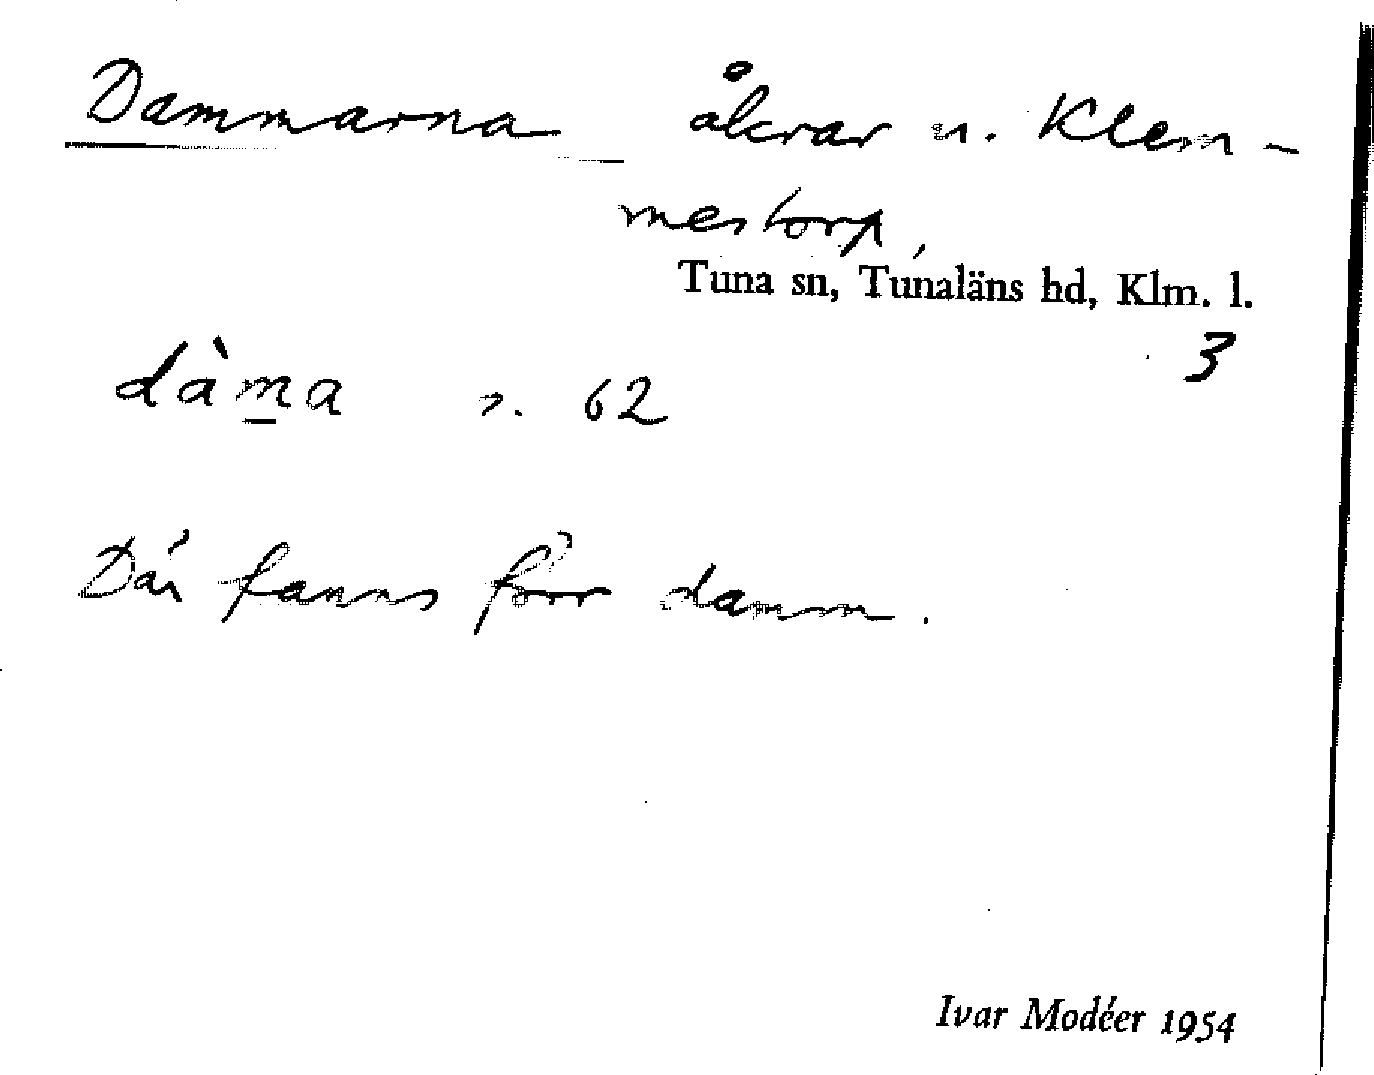 Dammarna åkrar u. Klem-
mestorp,
Tuna sn, Tunaläns hd, Klm. l.
3
dàm̲a s. 62
Där fanns förr damm.
Ivar Modéer 1954